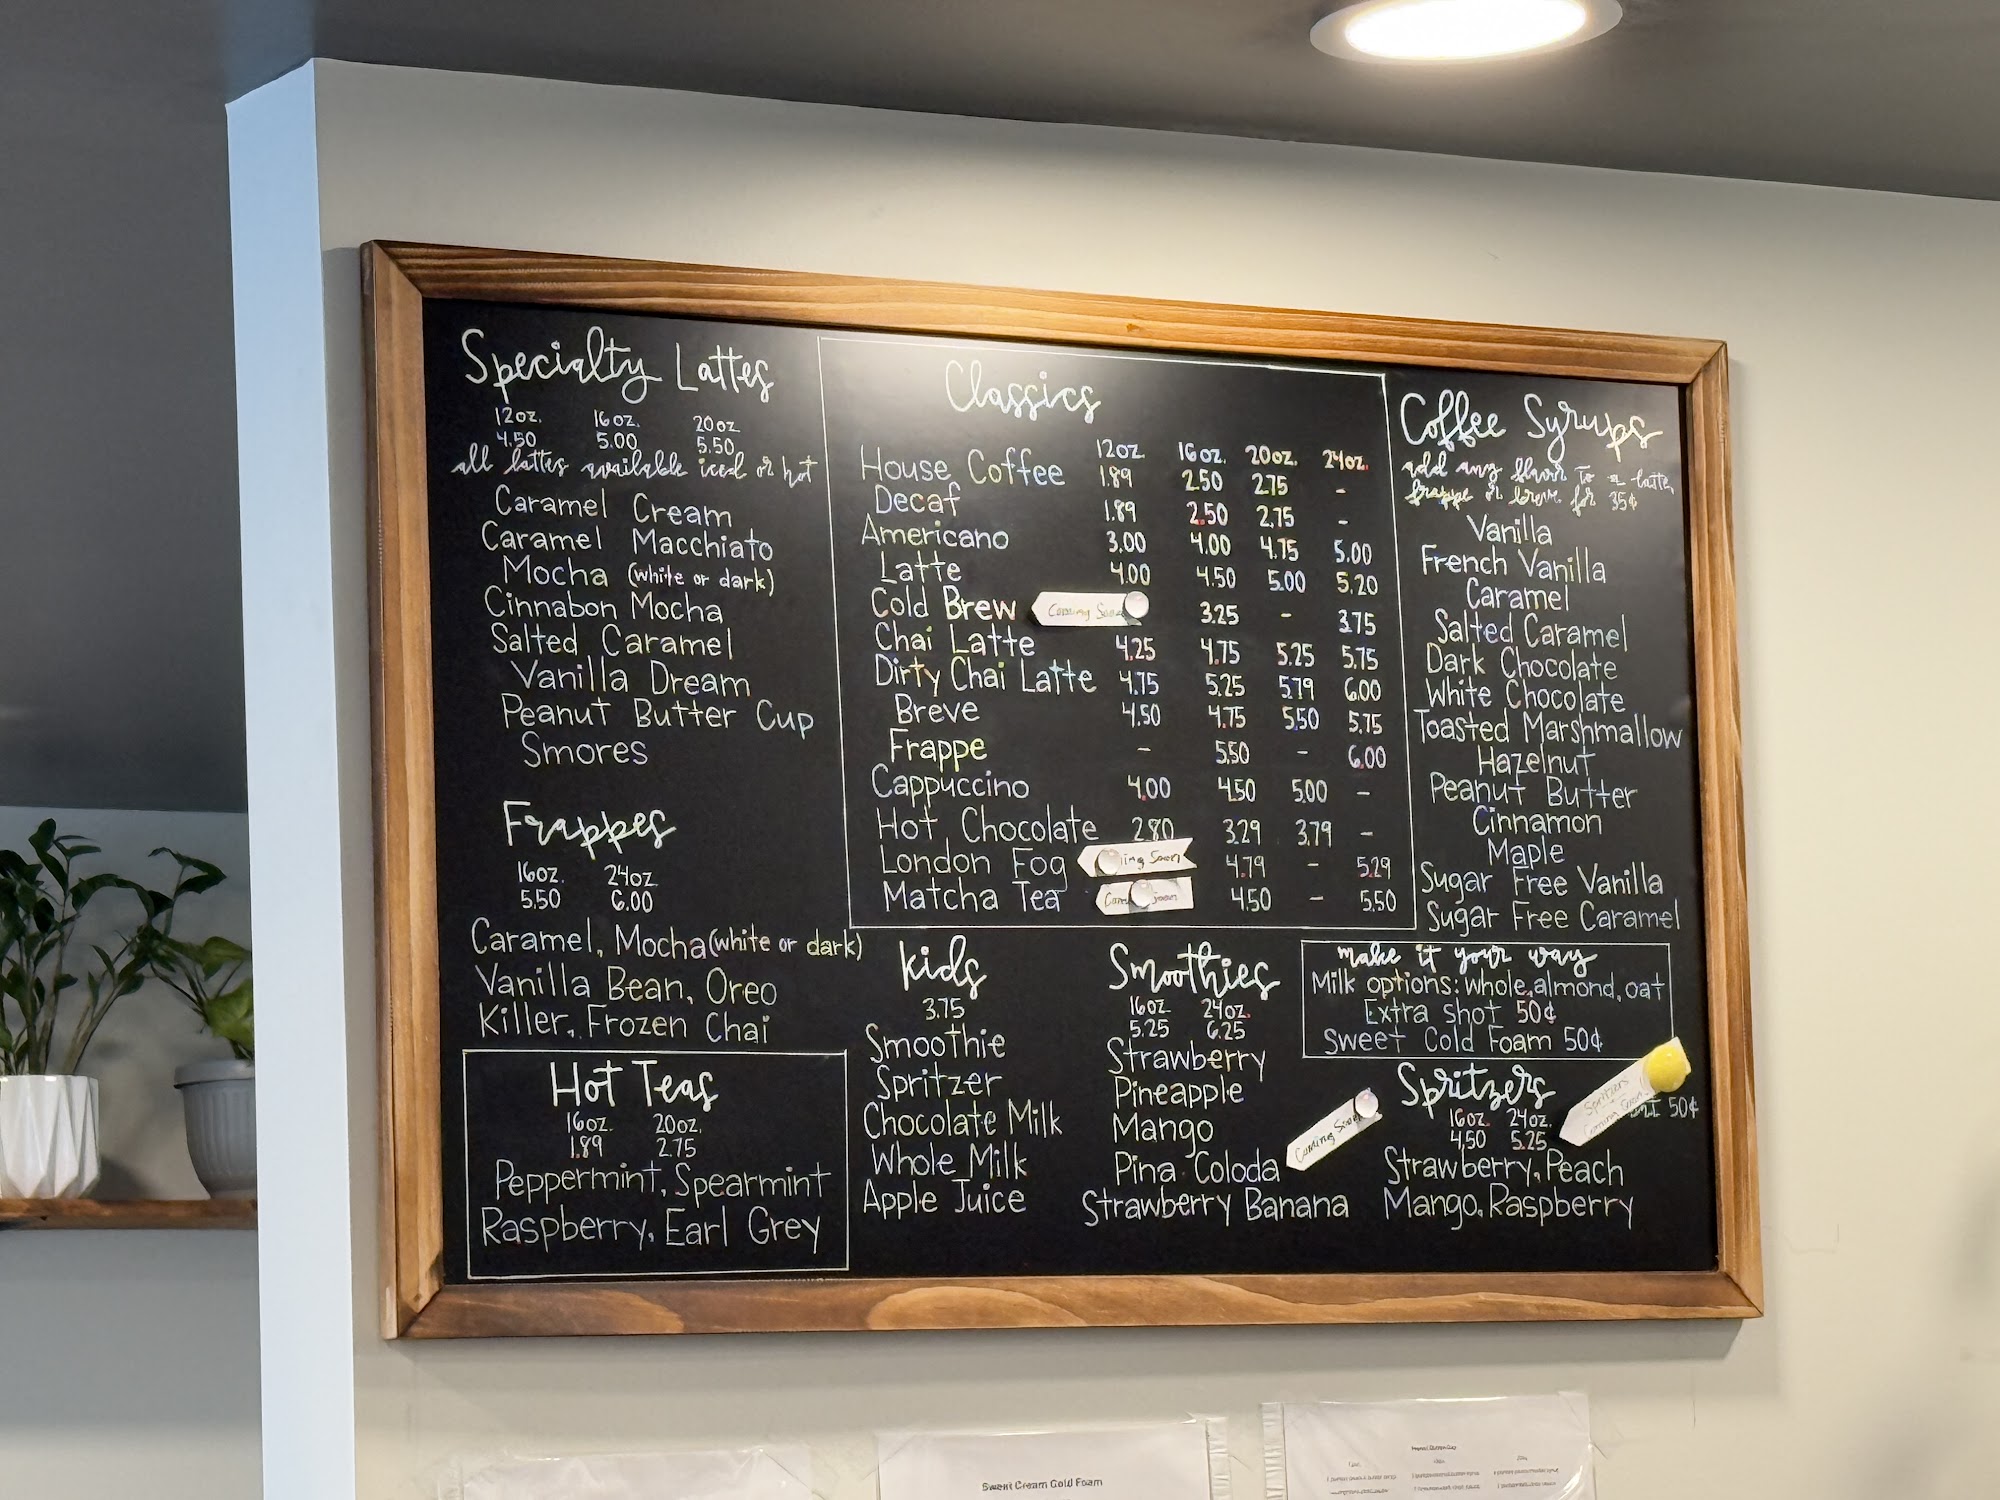 Specialty Lattes
12oz. 16oz. 20oz
4.50 5.00 5.50
all lattes available iced or hot
Caramel Cream
Caramel Macchiato
Mocha (white or dark)
Cinnabon Mocha
Salted Caramel
Vanilla Dream
Peanut Butter Cup
Smores
Frappes
16oz. 24oz
5.50 6.00
Caramel, Mocha(white or dark)
Vanilla Bean, Oreo
Killer, Frozen Chai
Hot Teas
16oz. 20oz.
1.89 2.75
Peppermint, Spearmint
Raspberry, Earl Grey
Classics
12oz 16oz. 20oz. 24oz.
House Coffee 1.89 2.50 2.75 -
Decaf 1.89 2.50 2.75 -
Americano 3.00 4.00 4.75 5.00
Latte 4.00 4.50 5.00 5.20
Cold Brew Coming Soon 3.25 - 3.75
Chai Latte 4.25 4.75 5.25 5.75
Dirty Chai Latte 4.75 5.25 5.79 6.00
Breve 4.50 4.75 5.50 5.75
Frappe - 5.50 - 6.00
Cappuccino 4.00 4.50 5.00 -
Hot Chocolate 2.80 3.29 3.79 -
London Fog Soon 4.79 - 5.29
Matcha Tea Soon 4.50 - 5.50
Kids
3.75
Smoothie
Spritzer
Chocolate Milk
Whole Milk
Apple Juice
Smoothies
16oz 24oz.
5.25 6.25
Strawberry
Pineapple
Mango
Pina Coloda Coming Soon
Strawberry Banana
Coffee Syrups
add any flavor to a latte,
frappe or breve for 35¢
Vanilla
French Vanilla
Caramel
Salted Caramel
Dark Chocolate
White Chocolate
Toasted Marshmallow
Hazelnut
Peanut Butter
Cinnamon
Maple
Sugar Free Vanilla
Sugar Free Caramel
make it your way
Milk options: whole, almond, oat
Extra shot 50¢
Sweet Cold Foam 50¢
Spritzers
Spritzers
Coming Soon!
50¢
16oz. 24oz.
4.50 5.25
Strawberry, Peach
Mango, Raspberry
Sweet Cream Cold Foam